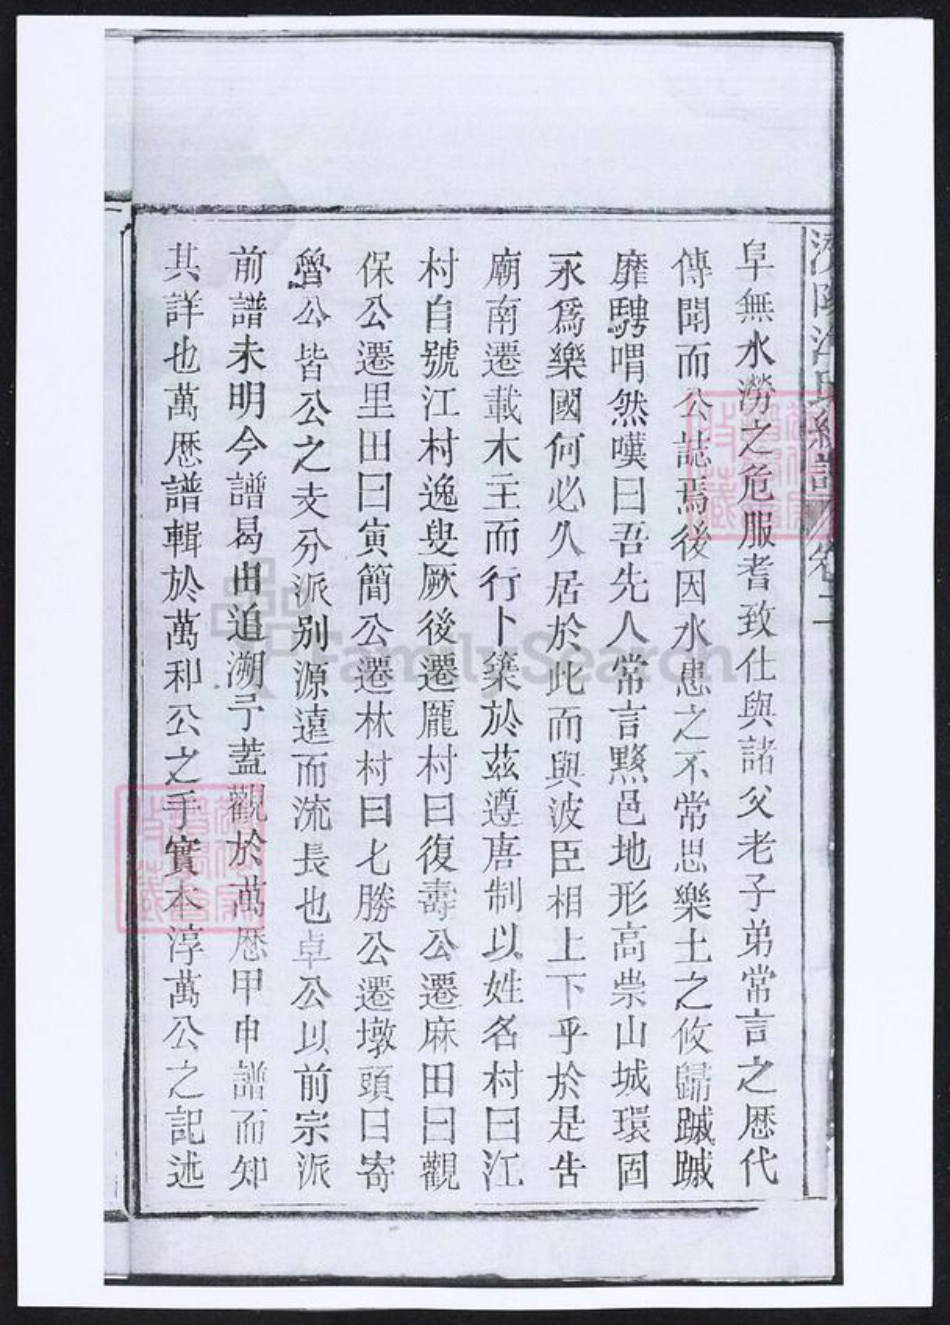 濟陽江氏統譜 卷二
阜無水澇之危服耆致仕與諸父老子弟常言之歷代
傳聞而公誌焉後因水患之不常思樂土之攸歸蹴蹴
靡騁喟然嘆曰吾先人常言黟邑地形高崇山城環固
永爲樂國何必久居於此而與波臣相上下乎於是告
廟南遷載木主而行卜築於茲遵唐制以姓名村曰江
村自號江村逸叟厥後遷龐村曰復壽公遷麻田曰觀
保公遷里田曰寅簡公遷林村曰七勝公遷墩頭曰寄
魯公皆公之支分派别源遠而流長也卓公以前宗派
前譜未明今譜曷由追溯予蓋觀於萬厯甲申譜而知
其詳也萬厯譜輯於萬和公之手實本淳萬公之記述
FamilySearch